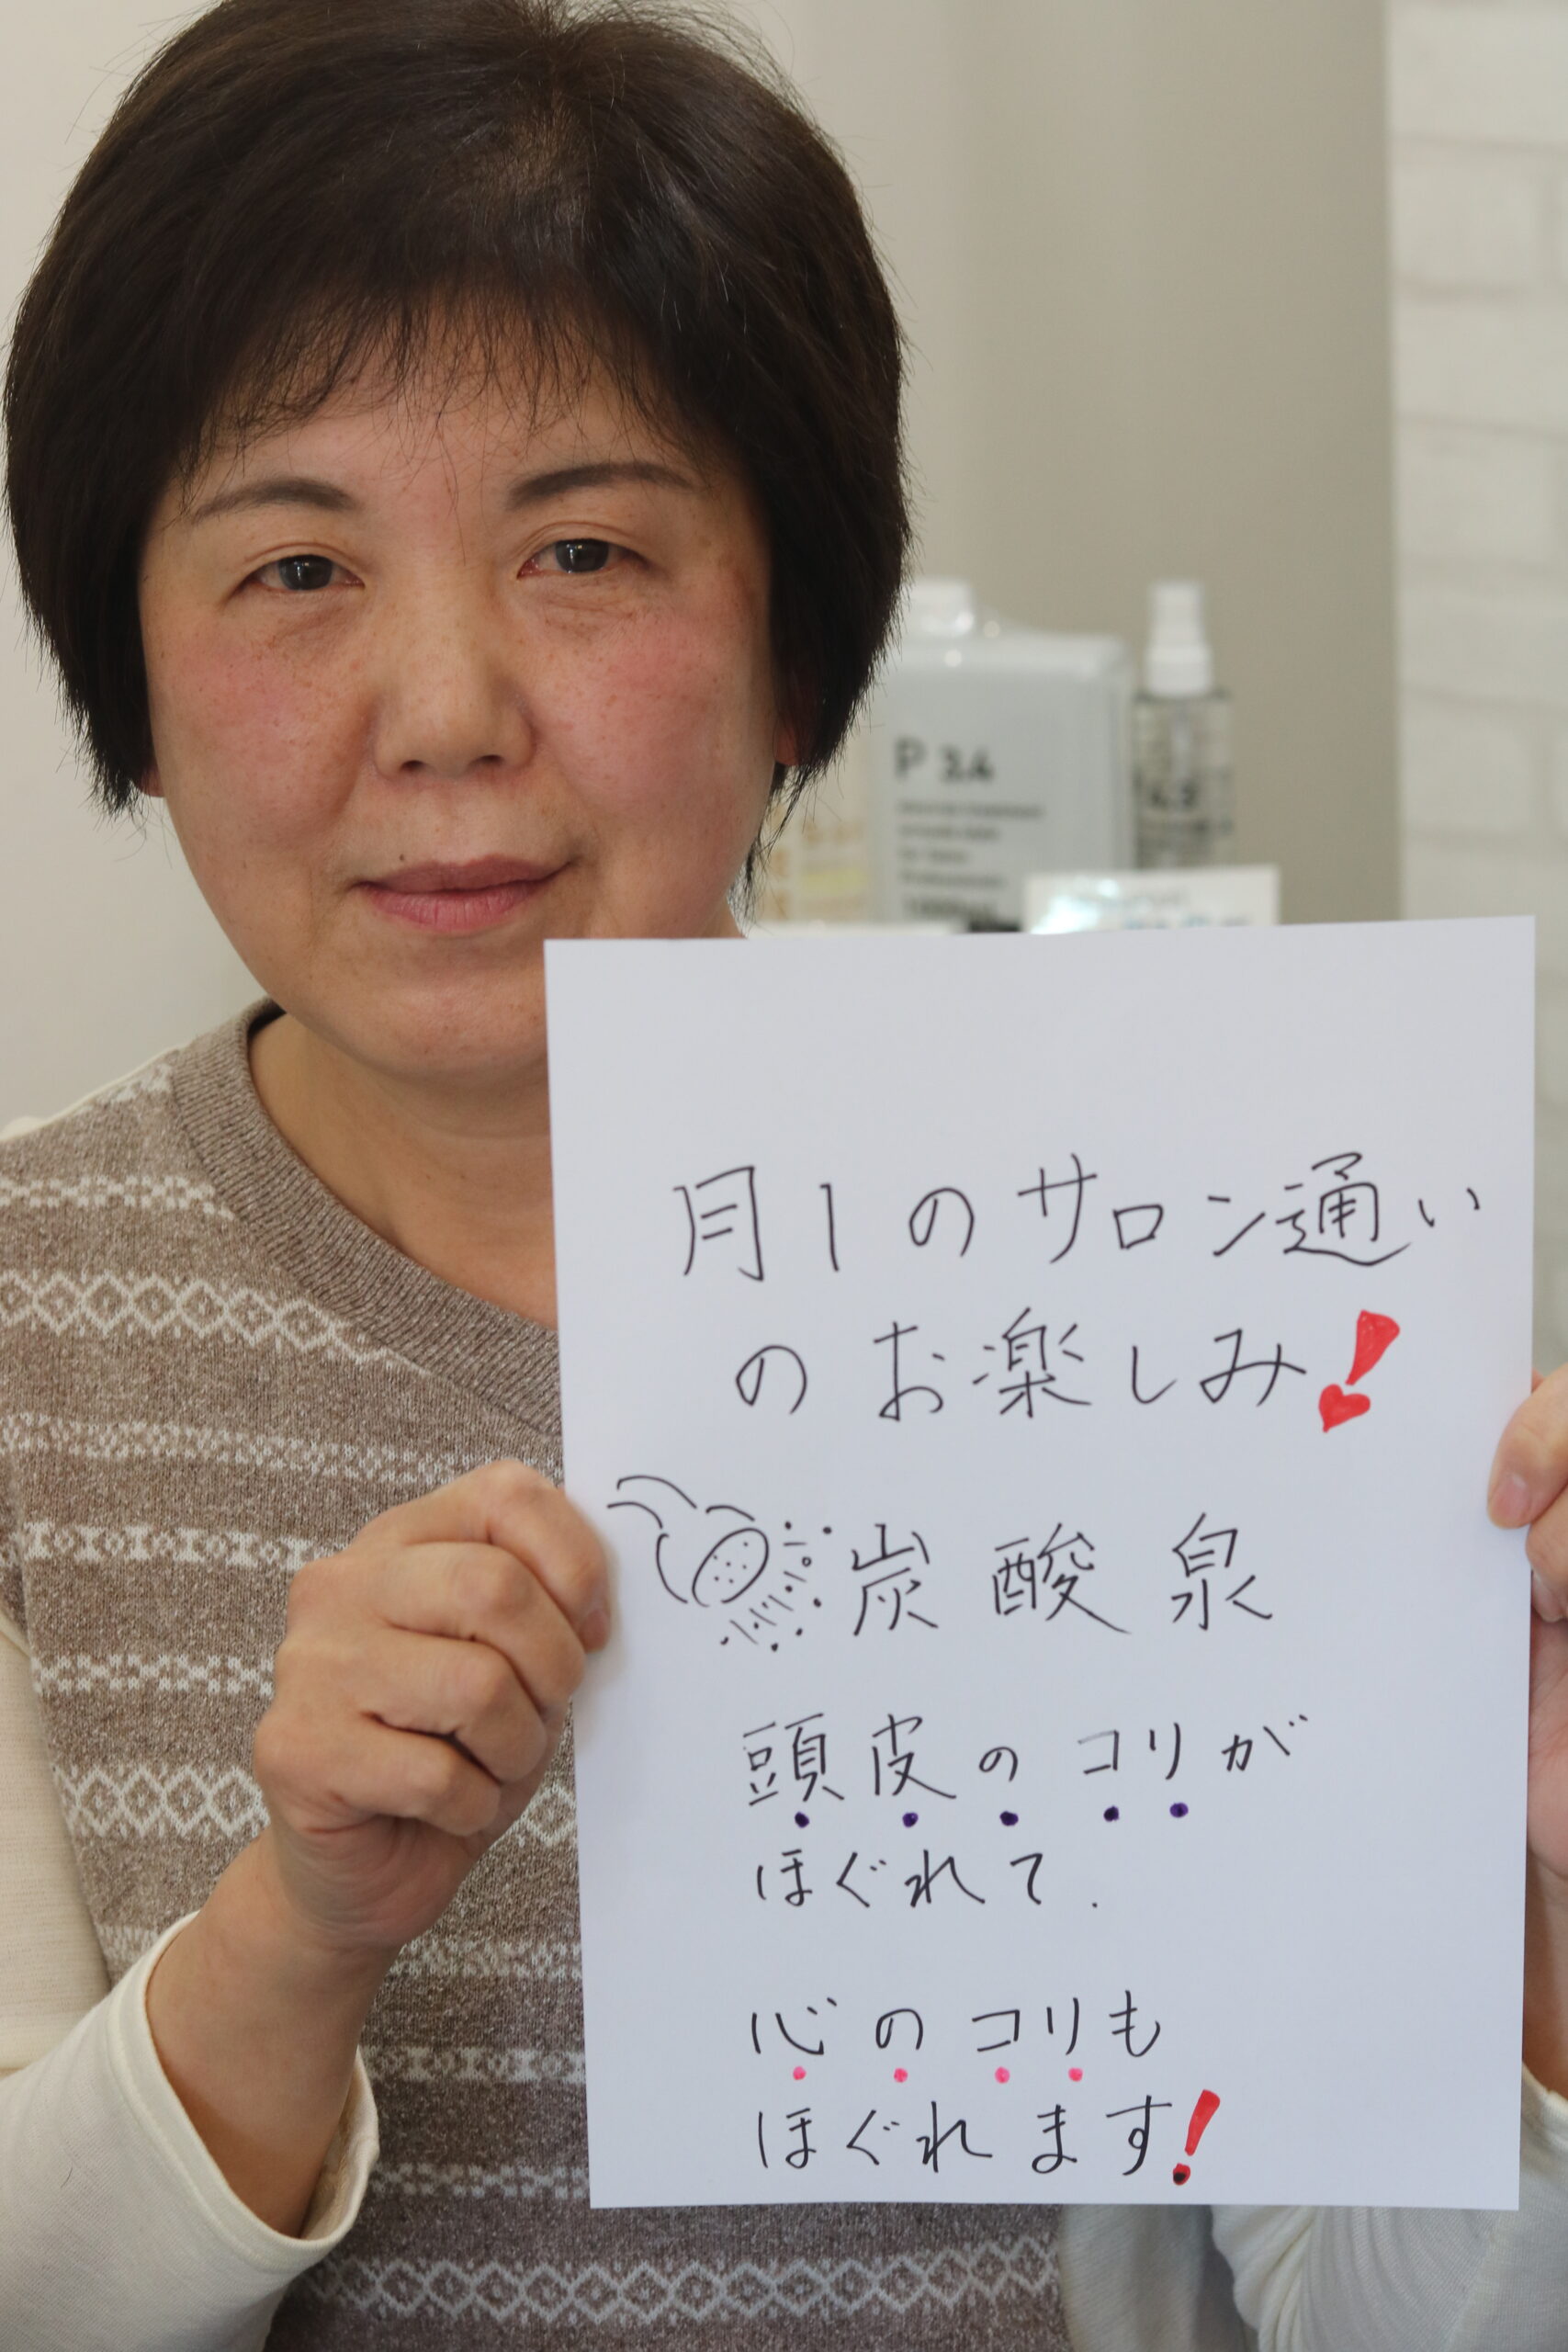 P 3.4
月1のサロン通い
のお楽しみ!
炭酸泉
頭皮のコリが
ほぐれて.
心のコリも
ほぐれます!